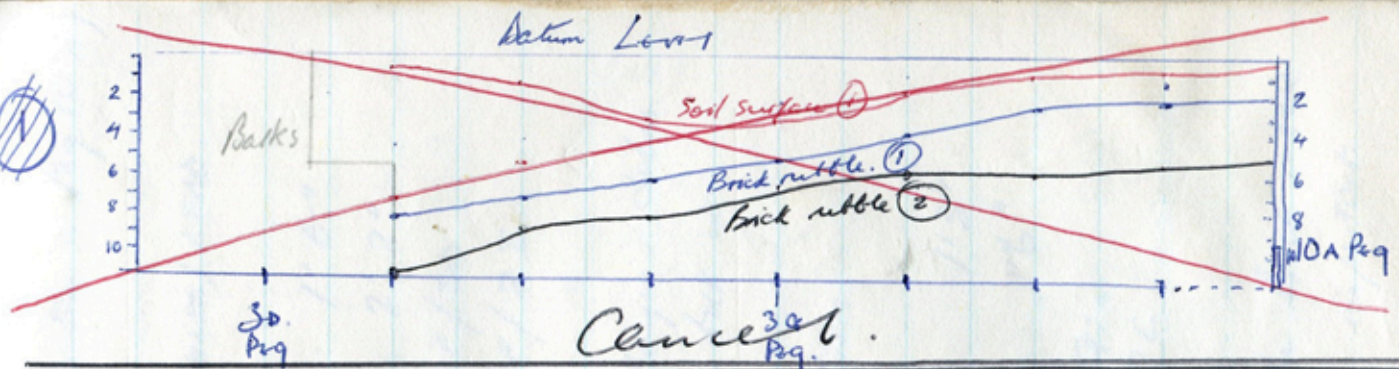 Datum Level
N
2
4
6
8
10
Balks
Soil surface 1
Brick rubble. 1
Brick rubble 2
2
4
6
8
10 A Peg
3D.
Peg
Peg.
Cancel.